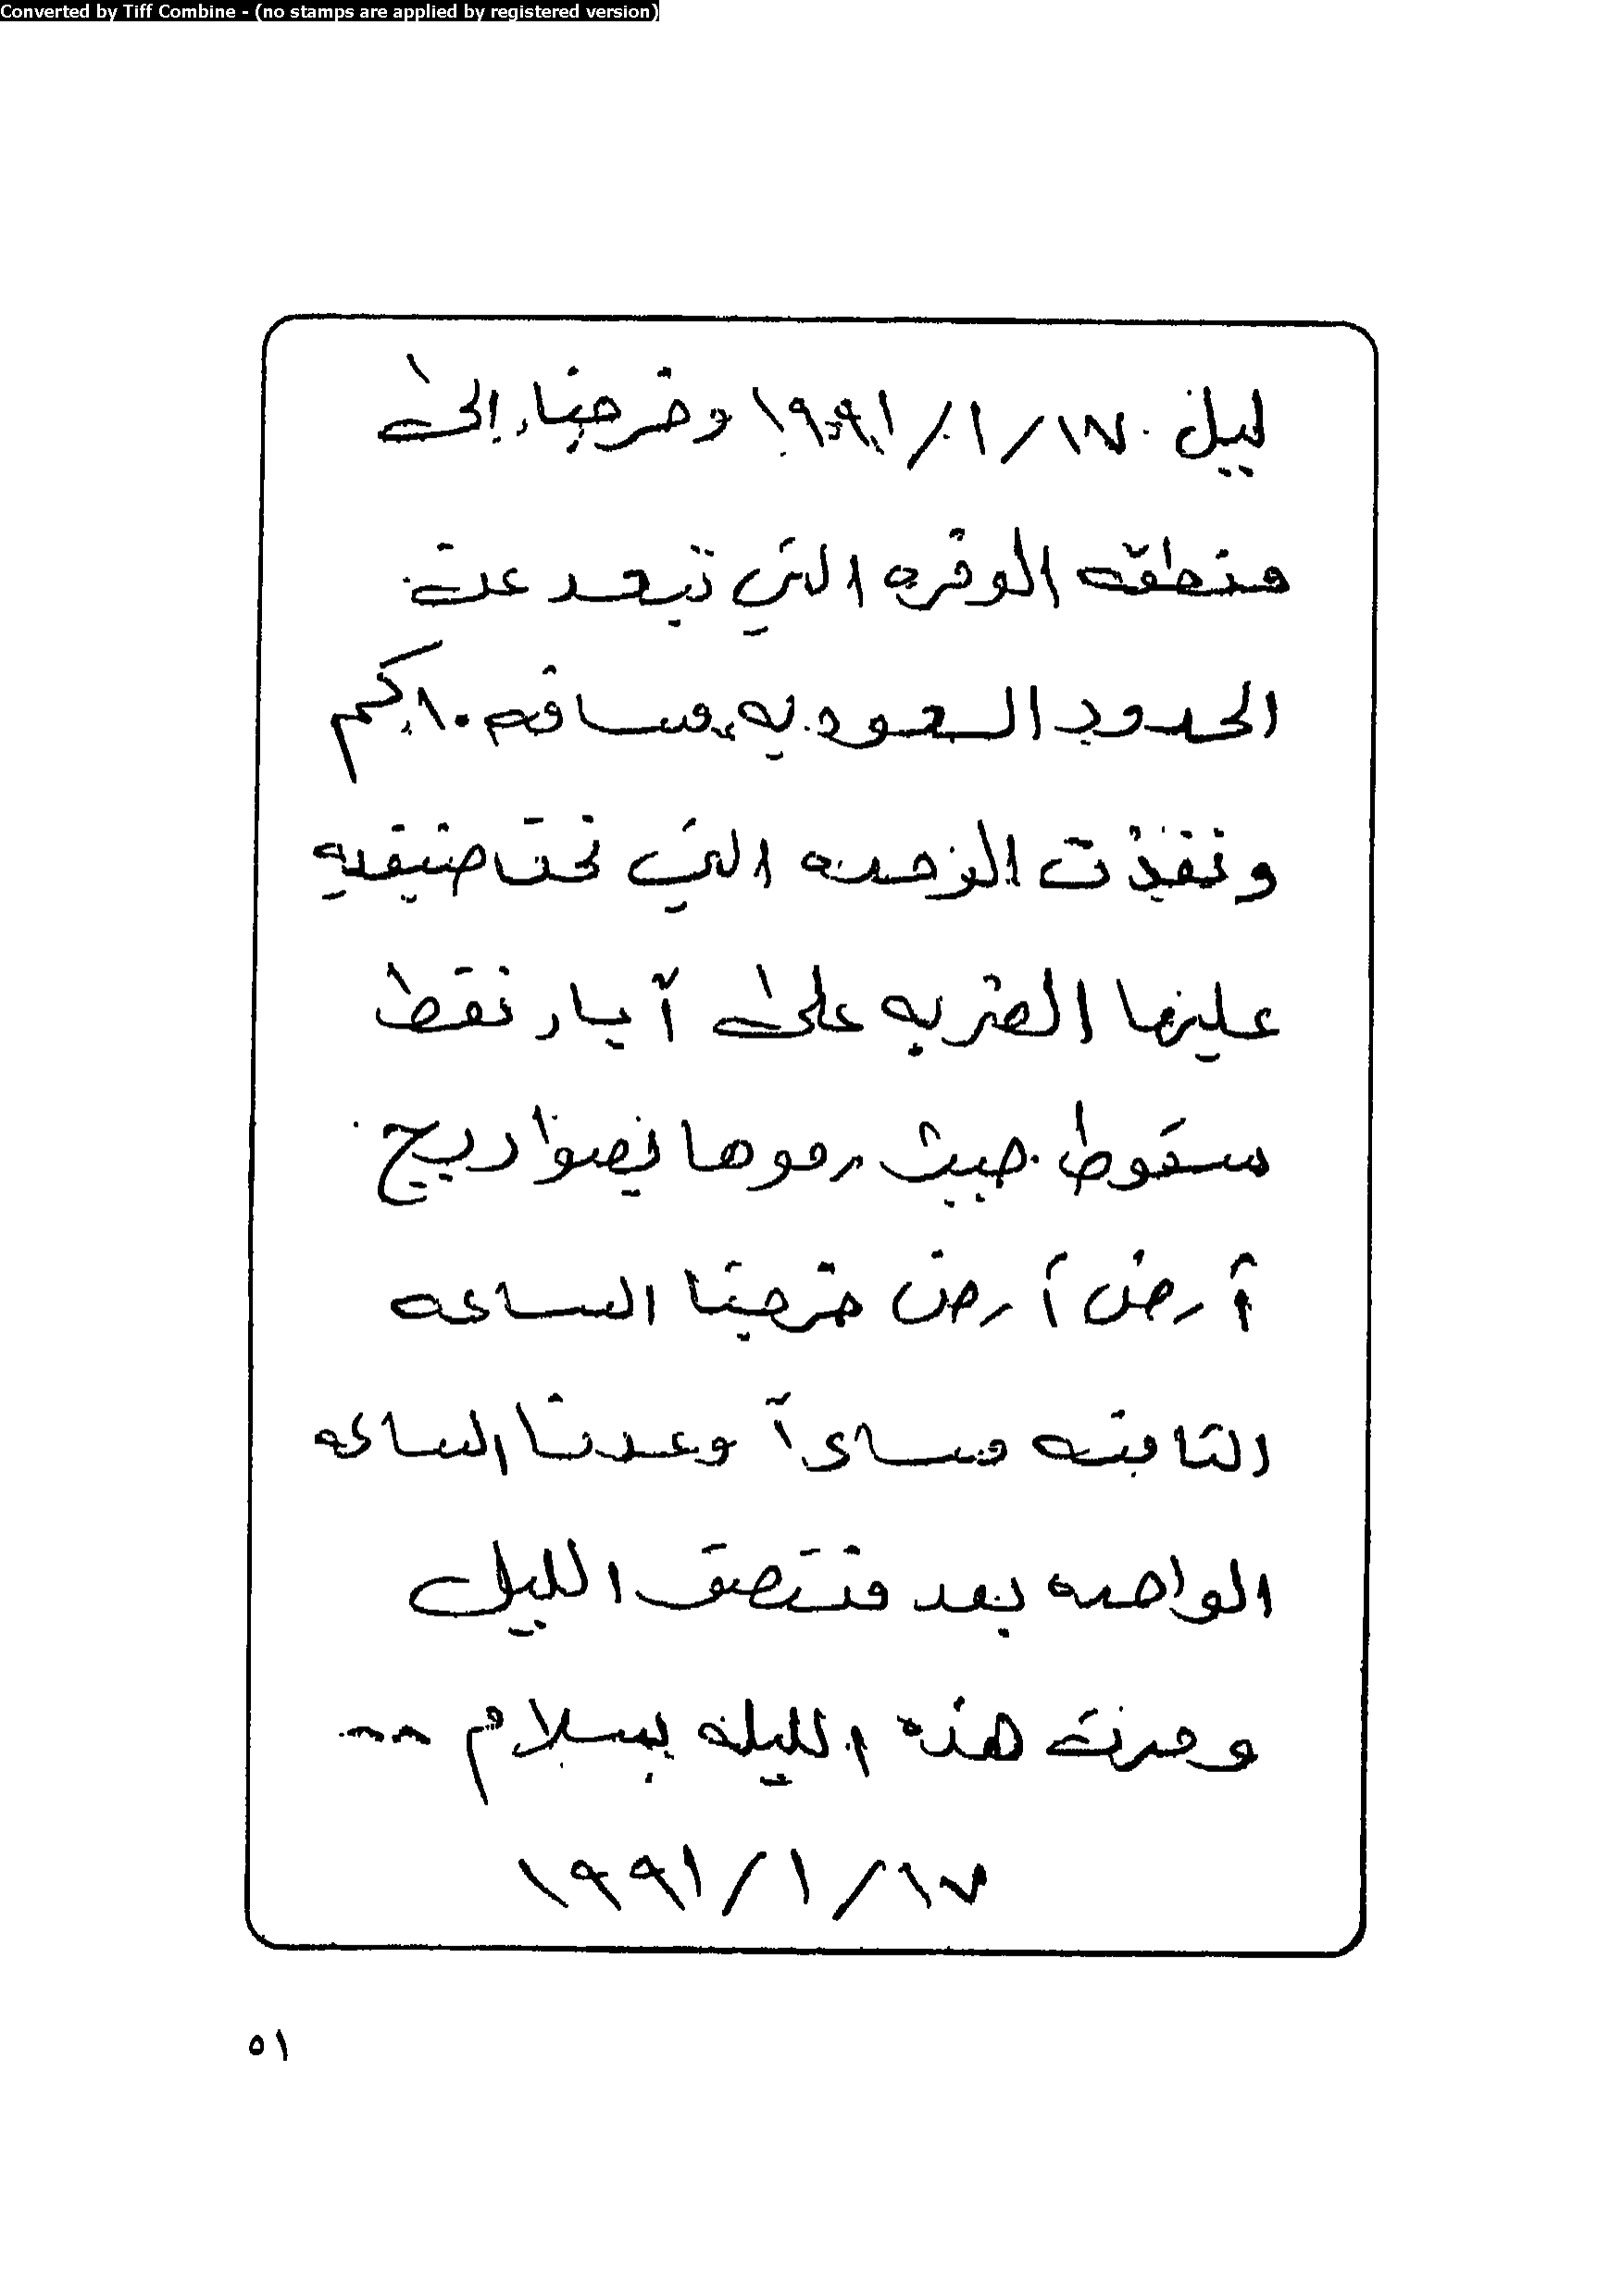 Converted by Tiff Combine - (no stamps are applied by registered version)
ليل ١٧/١/١٩٩١ وخرجنا إلى
منطقه الوفره التي تبعد عن
الحدود السعوديه مسافه ١٠ كم
ونفذت الوحده التي نحن
عليها الضربه على آبار نفط
سقوط حيث رموها بصواريخ
أرض أرض خرجنا الساعه
الثامنه مساءً وعدنا الساعه
الواحده بعد منتصف الليل
ومرت هذه الليله بسلام ..
١٩٩١/١/١٧
٥١